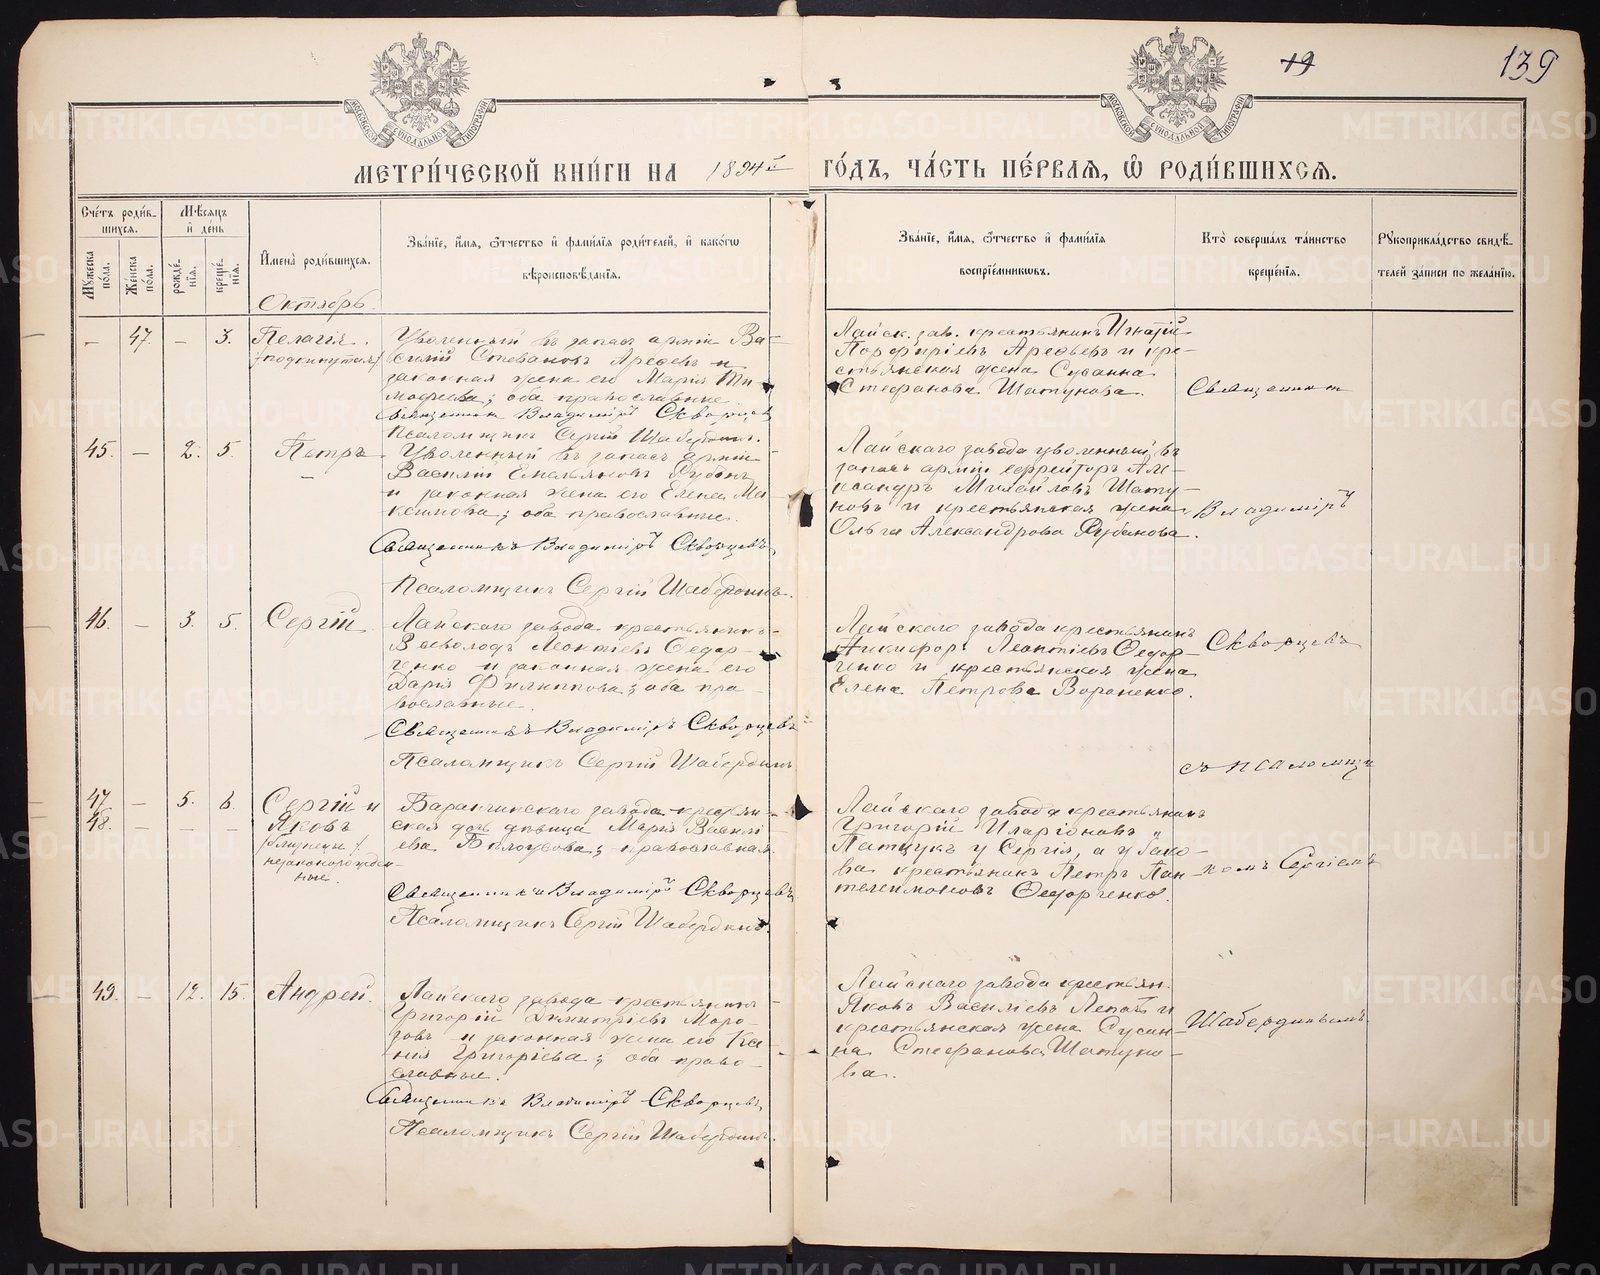 19
139
МОСКОВСКОЙ СѴНОДАЛЬНОЙ ТИПОГРАФІИ
МОСКОВСКОЙ СѴНОДАЛЬНОЙ ТИПОГРАФІИ
МЕТРИ́ЧЕСКОЙ КНИ́ГИ НА 1894й ГО́ДЪ, ЧА́СТЬ ПЕ́РВАЯ, Ѽ РОДИ́ВШИХСЯ.
Сче́тъ роди́в-
шихся.
Мѣ́сяцъ
и де́нь
Му́жеска по́ла.
Же́нска по́ла.
рожде́нїя.
креще́нїя.
И҆мена̀ роди́вшихся.
Зва́нїе, и҆́мя, ѻ҆́тчество и҆ фами́лїя роди́телей, и҆ како́гѡ
вѣроисповѣ́данїя.
Зва́нїе, и҆́мя, ѻ҆́тчество и҆ фами́лїя
воспрїе́мникѡвъ.
Кто̀ соверша́лъ та́инство
креще́нїя.
Рꙋкоприкла́дство свидѣ́-
телей за́писи по жела́нїю.
Октябрь
— 47. — 3. Пелагія.
(подкинутая)
Уволенный въ запасъ арміи Ва-
силій Стефановъ Арефьевъ и
законная жена его Марія Ти-
мофеева; оба православные.
Священникъ Владиміръ Скворцевъ
Псаломщикъ Сергій Шабердинъ.
Лайск. зав. крестьянинъ Игнатій
Порфиріевъ Арефьевъ и кре-
стьянская жена Сусанна
Стефанова Шатунова.
Священник
45. — 2. 5. Петръ
Уволенный въ запасъ арміи
Василій Емельяновъ Рубанъ
и законная жена его Елена Ма-
ксимова; оба православные.
Священникъ Владиміръ Скворцевъ
Псаломщикъ Сергій Шабердинъ.
Лайскаго завода уволенный въ
запасъ арміи ефрейторъ Але-
ксандръ Михайловъ Шату-
новъ и крестьянская жена
Ольга Александрова Рубанова.
Владиміръ
46. — 3. 5. Сергій
Лайскаго завода крестьянинъ
Всеволодъ Леонтіевъ Федор-
ченко и законная жена его
Дарія Филиппова; оба пра-
вославные.
Священникъ Владиміръ Скворцевъ
Псаломщикъ Сергій Шабердинъ
Лайскаго завода крестьянинъ
Никифоръ Леонтіевъ Федор-
ченко и крестьянская жена
Елена Петрова Вороненко.
Скворцевъ
съ псаломщи
47. — 5. 6. Сергій и
48. — — — Яковъ
(близнецы)
незаконорожден-
ные.
Баранчинскаго завода крестьян-
ская дочь дѣвица Марія Василі-
ева Білоусова; православная.
Священникъ Владиміръ Скворцевъ
Псаломщикъ Сергій Шабердинъ.
Лайскаго завода крестьянинъ
Григорій Иларіоновъ
Патщукъ у Сергія, а у Яко-
ва крестьянинъ Петръ Пан-
телеимоновъ Федорченко.
комъ Сергіемъ
49. — 12. 15. Андрей.
Лайскаго завода крестьянинъ
Григорій Димитріевъ Моро-
зовъ и законная жена его Ксе-
нія Григоріева; оба право-
славные.
Священникъ Владиміръ Скворцевъ
Псаломщикъ Сергій Шабердинъ.
Лайскаго завода крестьян.
Яковъ Василіевъ Лепотъ и
крестьянская жена Сусан-
на Стефанова Шатуно-
ва.
Шабердинымъ.
METRIKI.GASO-URAL.RU